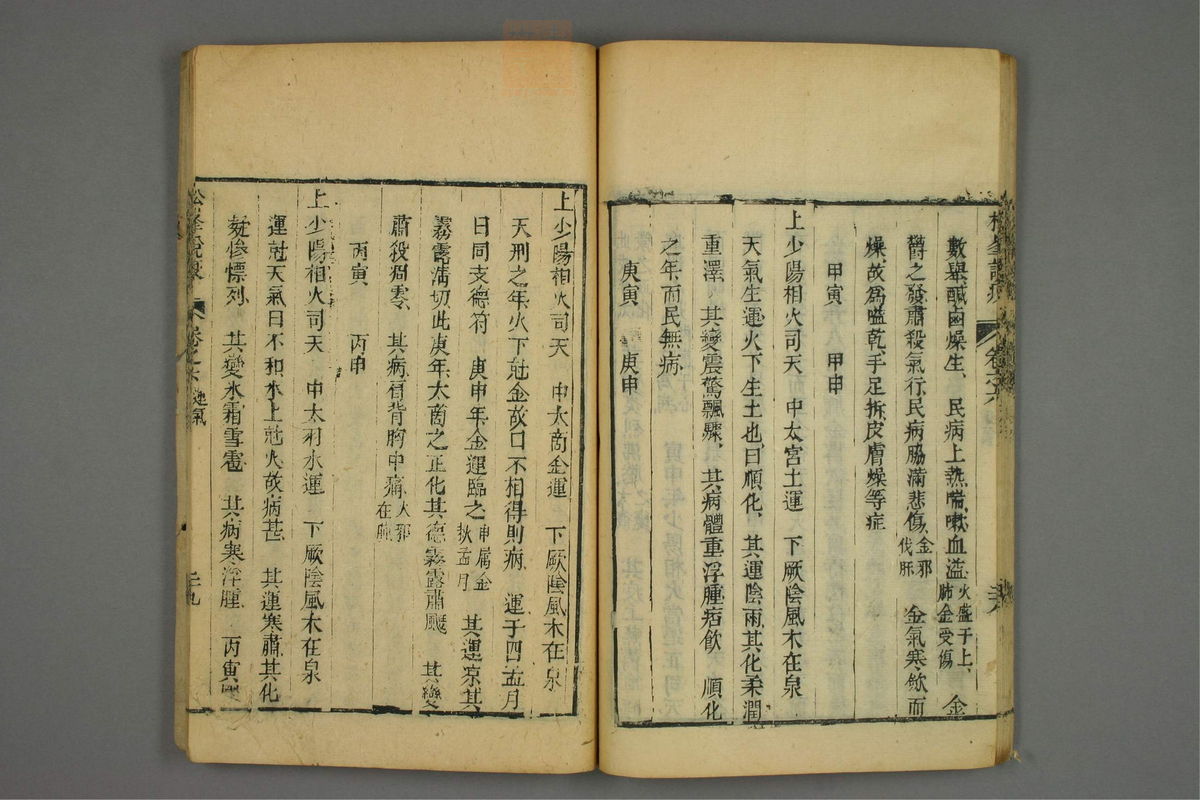 數舉鹹鹵燥生民病上熱喘嗽血溢火盛于上肺金受傷 金
欝之發肅殺氣行民病脇滿悲傷金邪伐肝 金氣寒歛而
燥故爲嗌乾手足拆皮膚燥等症
甲寅 甲申
上少陽相火司天 中太宮土運 下厥陰風木在泉
天氣生運火下生土也曰順化其運陰雨其化柔潤
重澤其變震驚飄驟其病體重浮腫痞飲 順化
之年而民無病
庚寅 庚申
卷之六
上少陽相火司天 中太商金運 下厥陰風木在泉
天刑之年火下尅金故曰不相得則病 運于四孟月
曰同支德符 庚申年金運臨之申屬金狄孟月 其運凉其
霧露清切此庚年太商之正化其德霧露肅飋 其變
肅殺凋零 其病肩背胸中痛火邪在肺
丙寅 丙申
上少陽相火司天 中太羽水運 下厥陰風木在泉
運尅天氣曰不和水上尅火故病甚 其運寒肅其化
凝慘慄列 其變氷霜雪雹 其病寒浮腫 丙寅
松峯說疫 卷之六 運氣